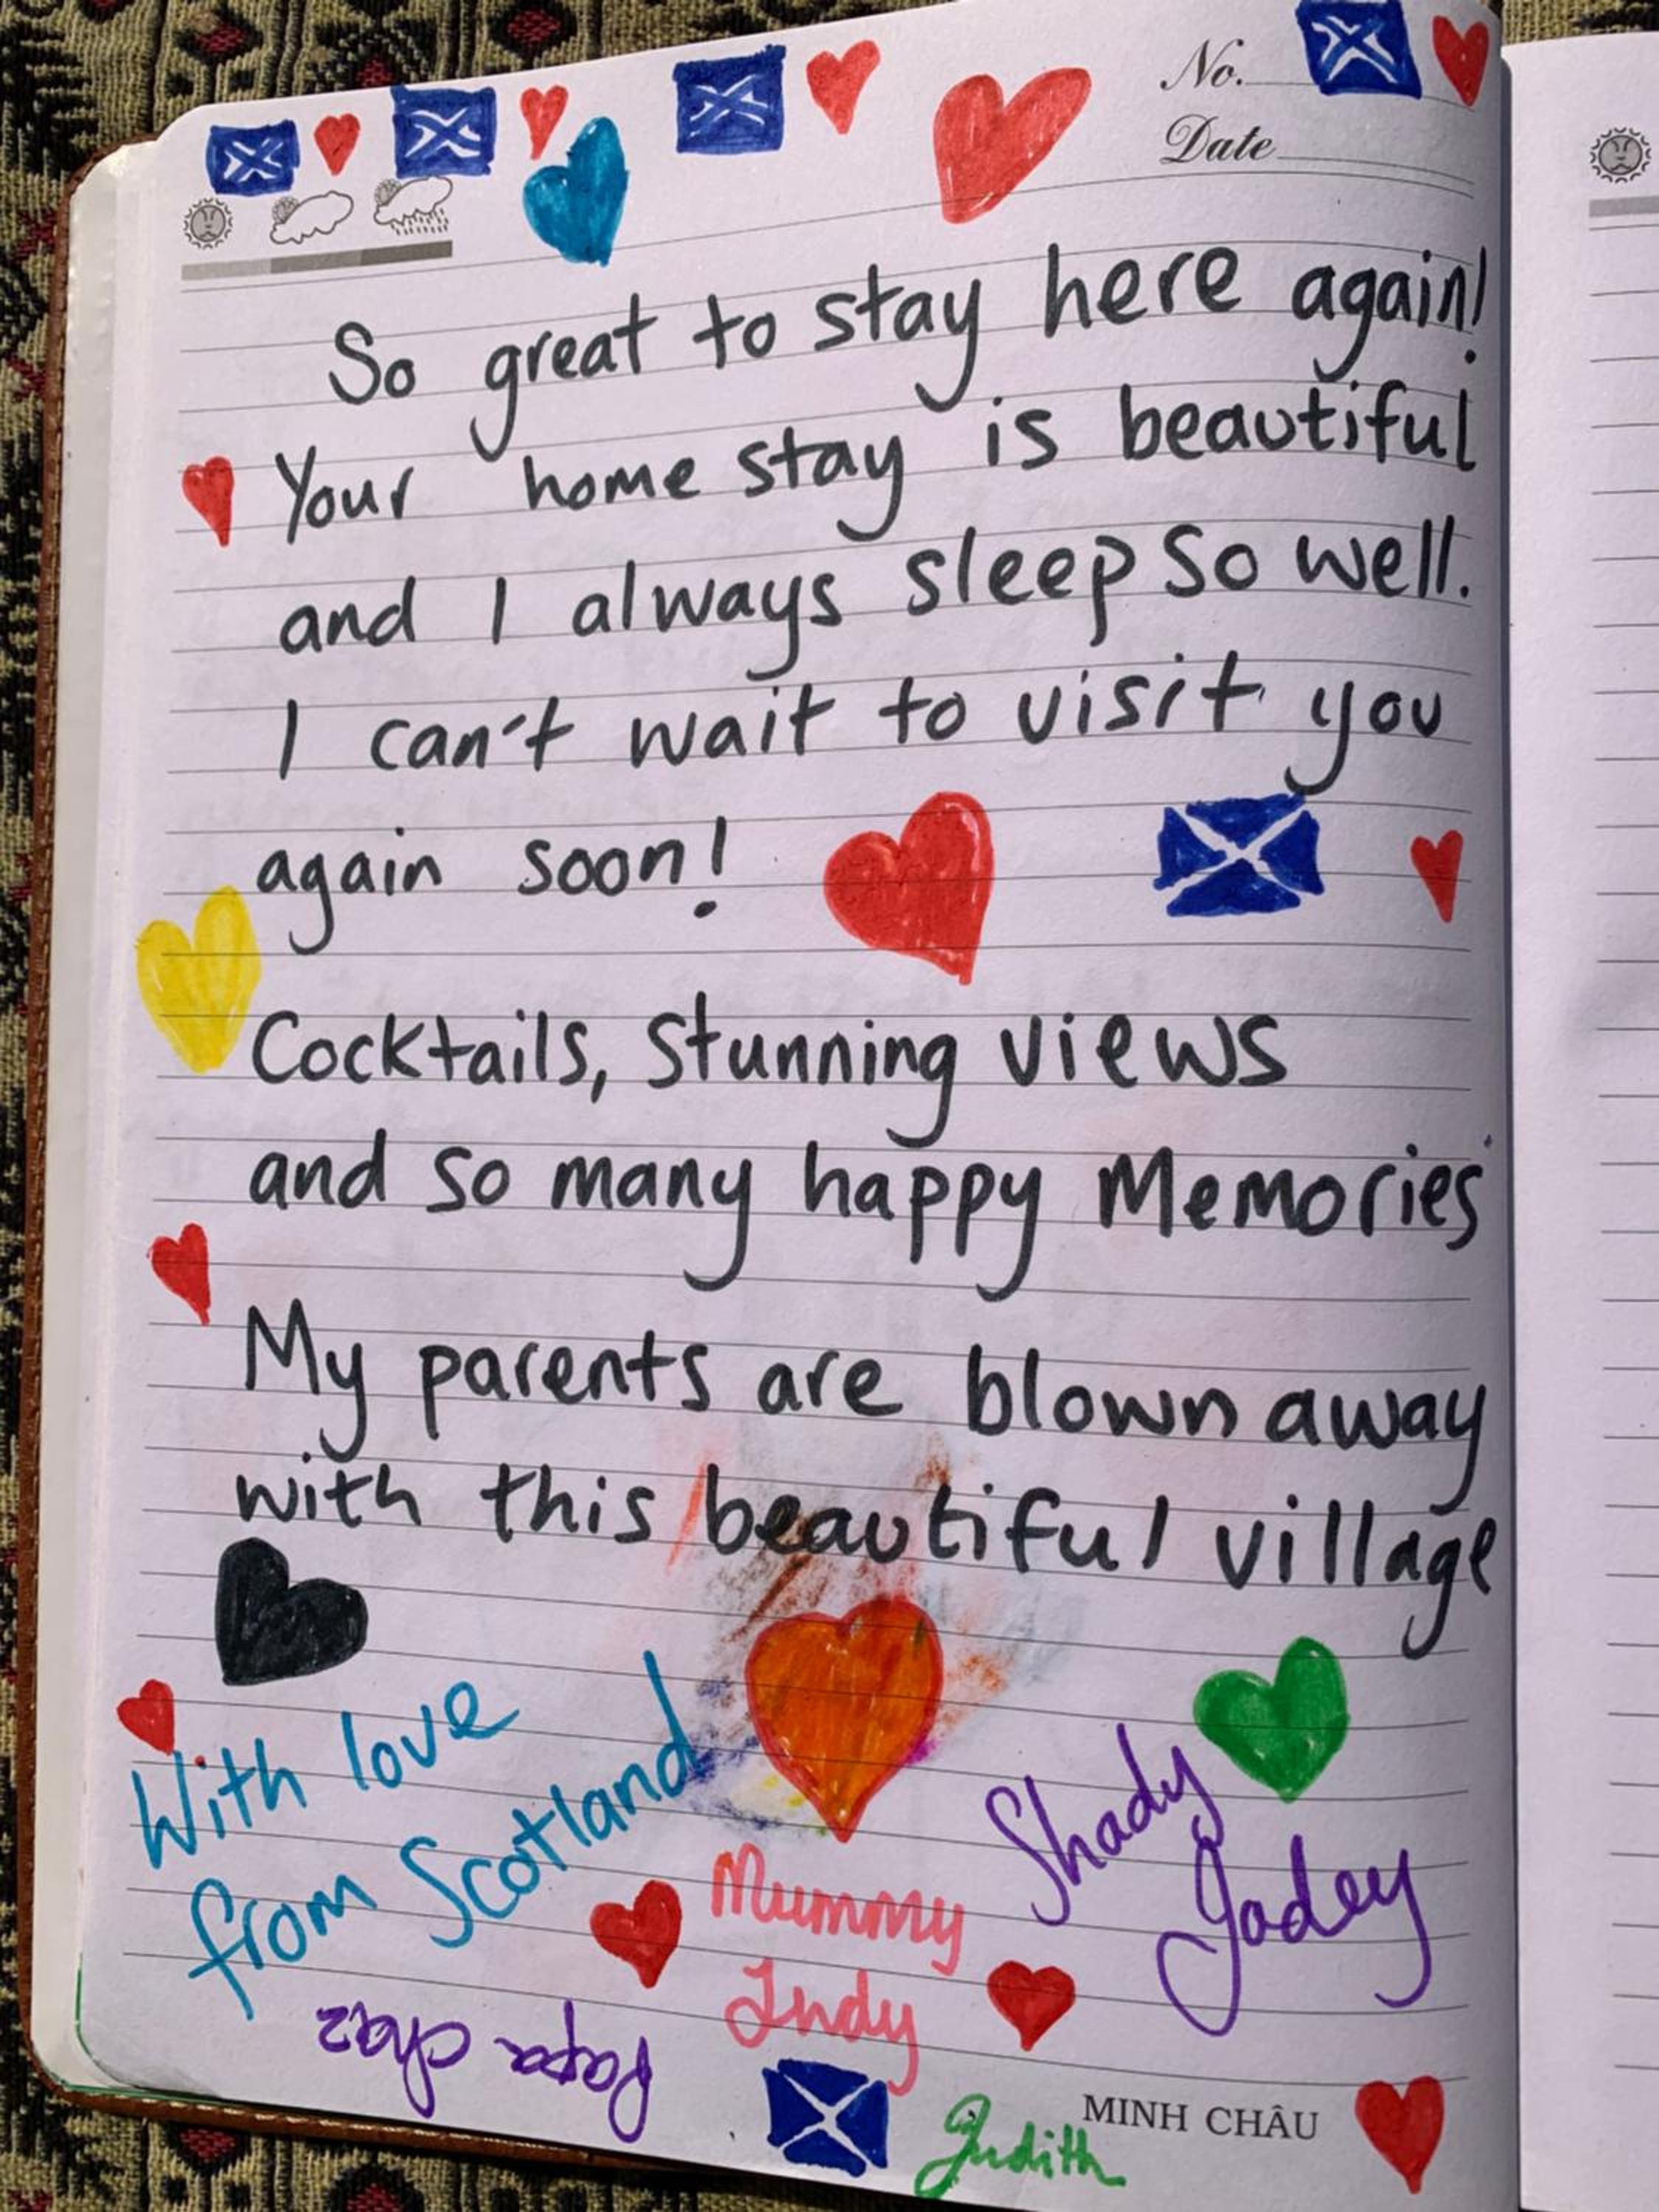 No.
Date
So great to stay here again!
Your home stay is beautiful
and I always sleep so well.
I can't wait to visit you
again soon!
Cocktails, Stunning views
and so many happy Memories
My parents are blown away
with this beautiful village
With love
from Scotland
Shady
Jadey
Mummy
Judy
Papa chaz
Judith
MINH CHÂU